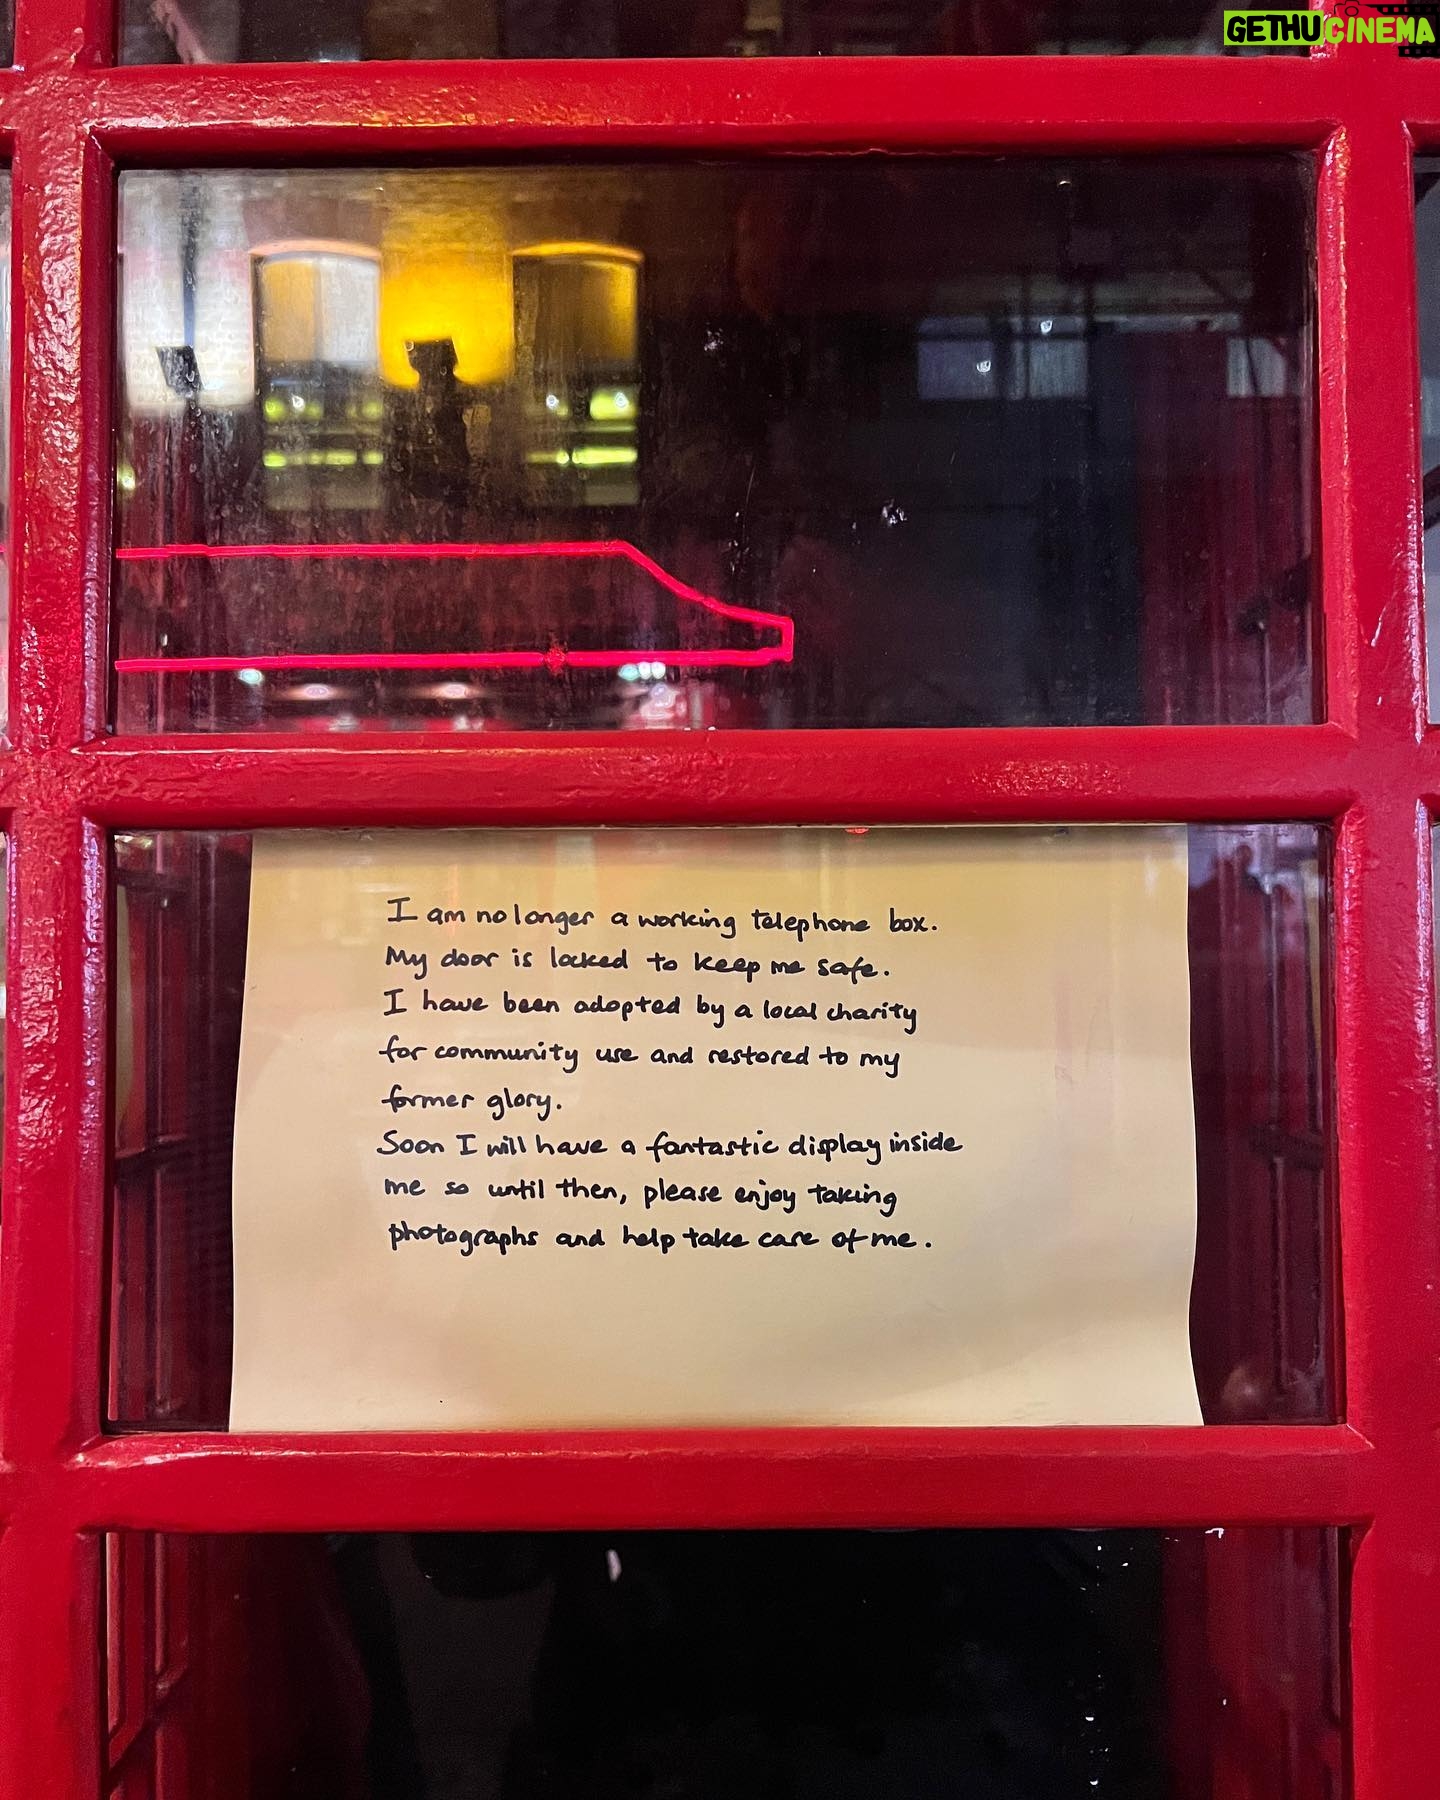 GETHUCINEMA
I am no longer a working telephone box.
My door is locked to keep me safe.
I have been adopted by a local charity
for community use and restored to my
former glory.
Soon I will have a fantastic display inside
me so until then, please enjoy taking
photographs and help take care of me.